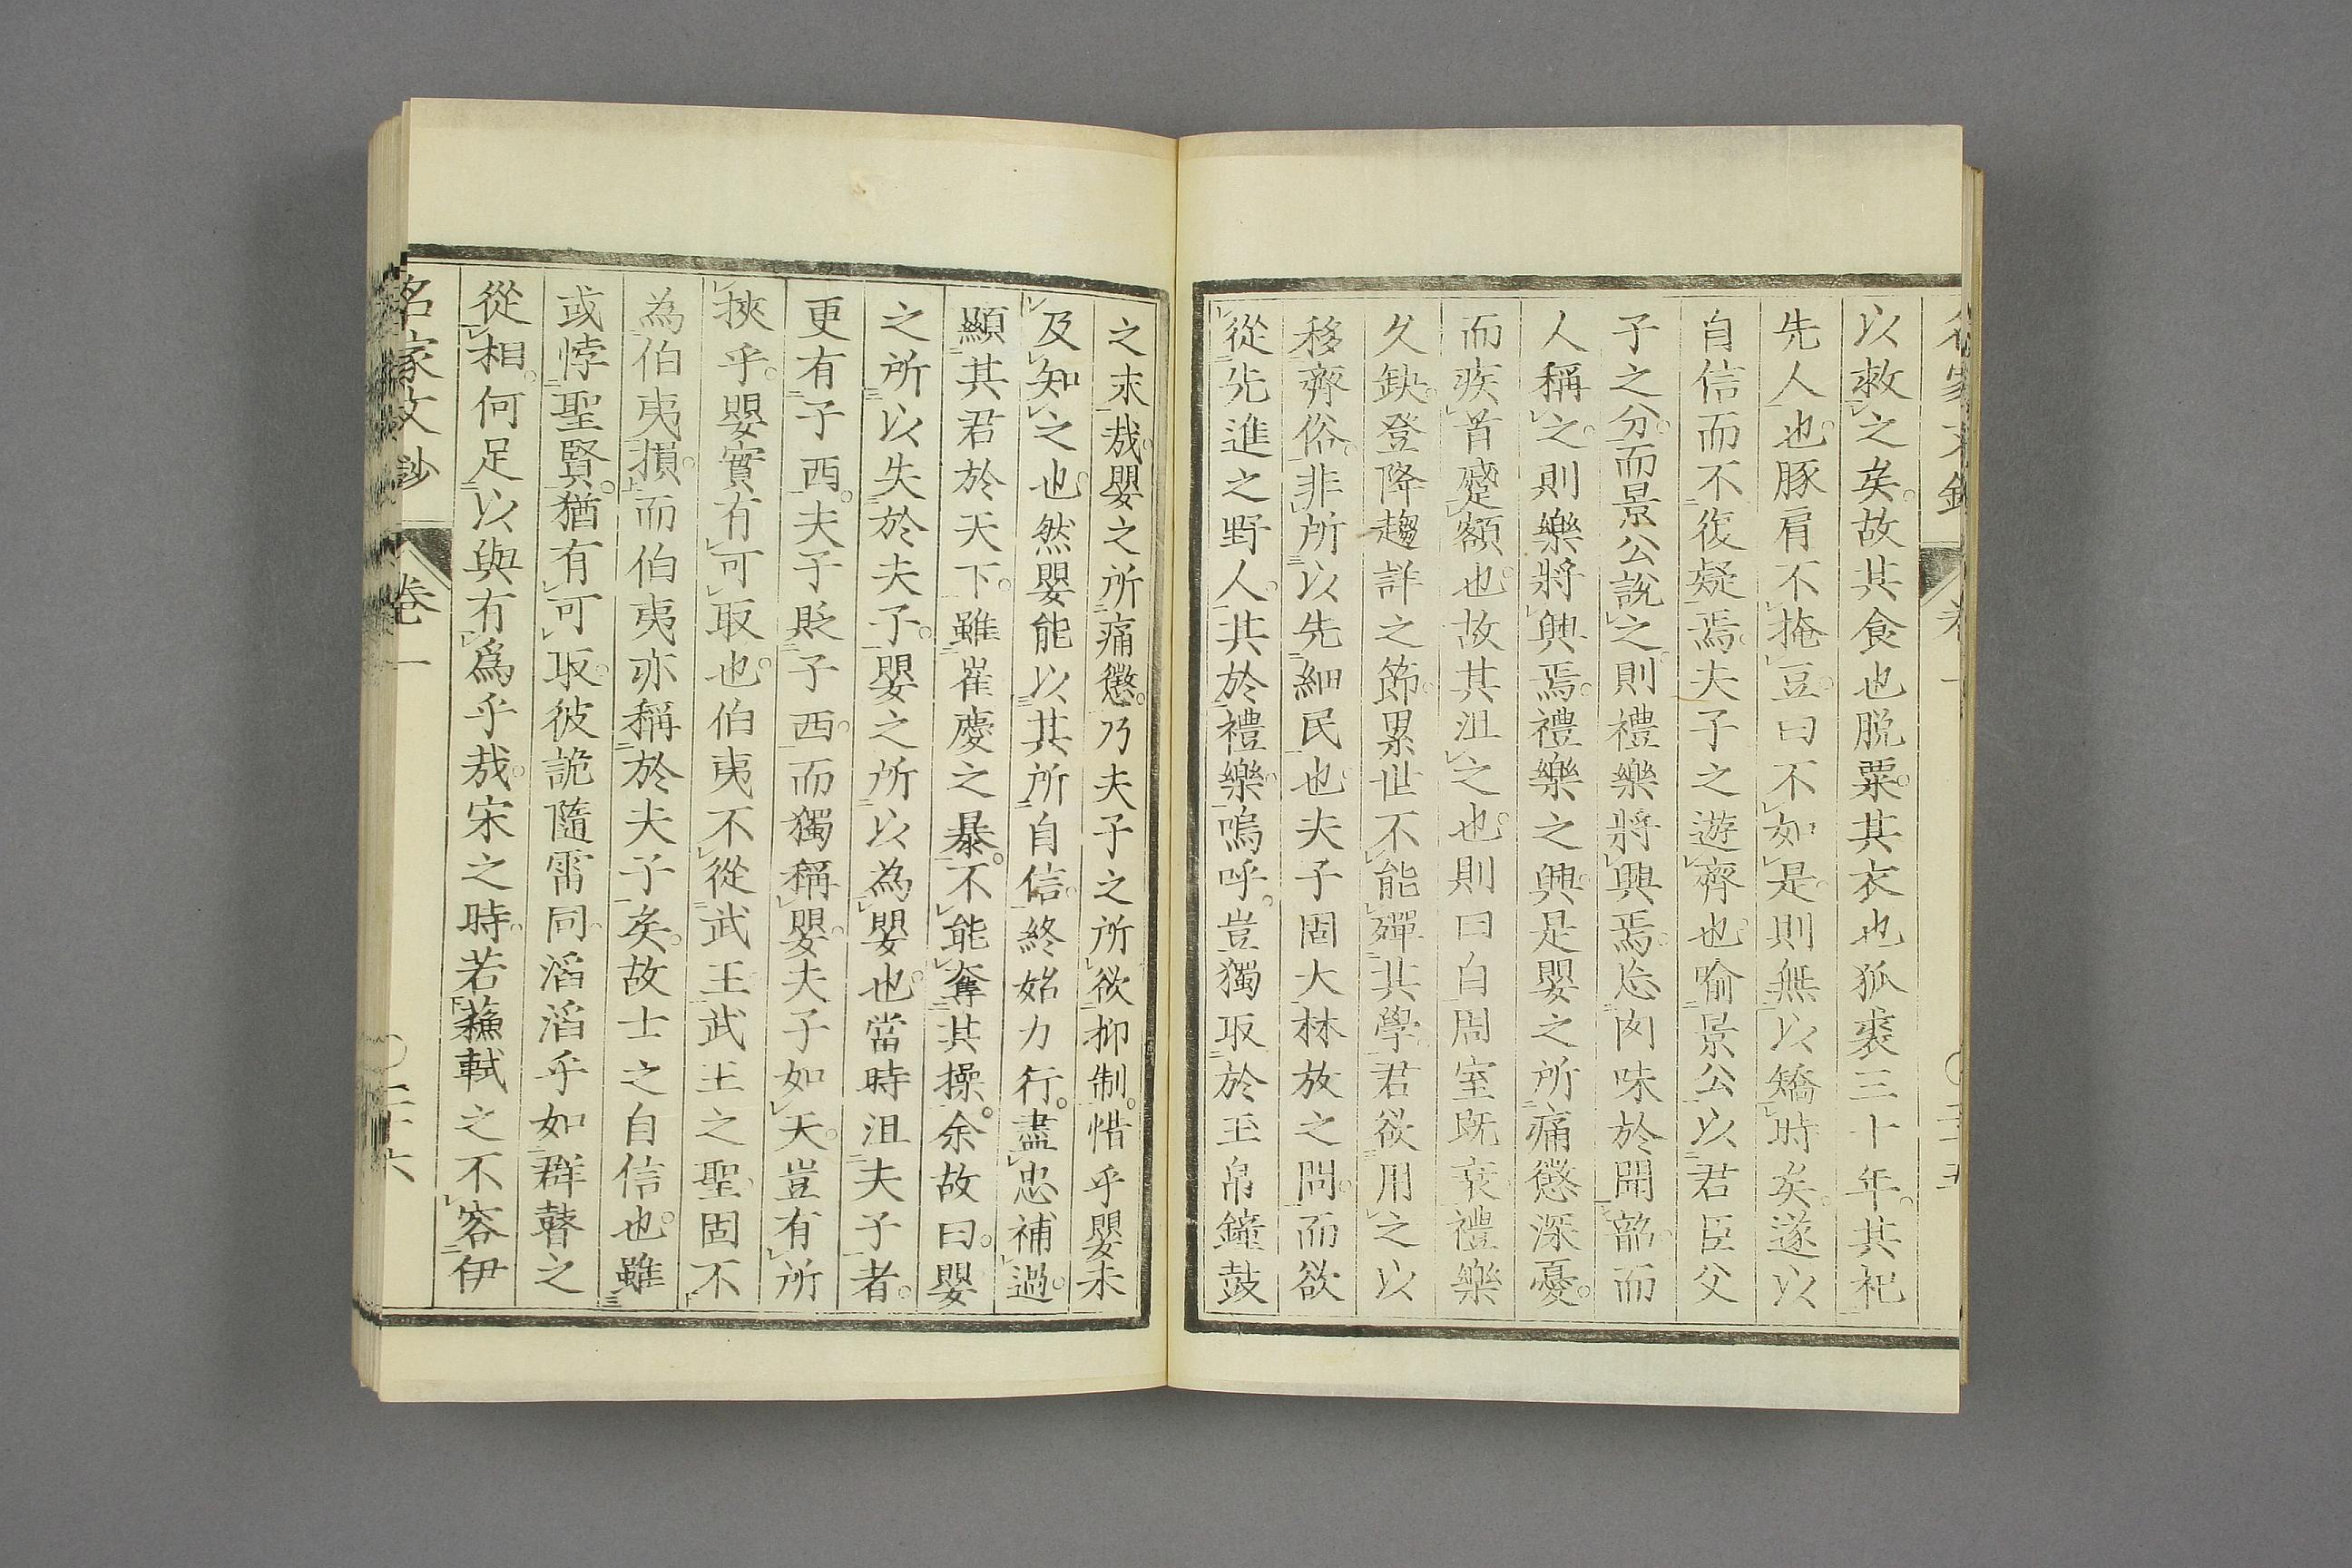 以救之矣。故其食也脱粟。其衣也狐裘三十年。其祀
先人也。豚肩不掩豆。曰不如是。則無以矯時矣。遂以
自信而不復疑焉。夫子之遊齊也。喻景公以君臣父
子之分。而景公說之。則禮樂將興焉。忘肉味於聞韶。而
人稱之。則樂將興焉。禮樂之興。是嬰之所痛懲深憂。
而疾首蹙額也。故其沮之也。則曰自周室既衰。禮樂
久缺。登降趨詳之節。累世不能殫其學。君欲用之以
移齊俗。非所以先細民也。夫子固大林放之問。而欲
從先進之野人。其於禮樂。嗚呼。豈獨取於玉帛鐘鼓
之末哉。嬰之所痛懲。乃夫子之所欲抑制。惜乎嬰未
及知之也。然嬰能以其所自信。終始力行。盡忠補過。
顯其君於天下。雖崔慶之暴。不能奪其操。余故曰。嬰
之所以失於夫子。嬰之所以為嬰也。當時沮夫子者。
更有子西。夫子貶子西。而獨稱嬰。夫子如天。豈有所
挾乎。嬰實有可取也。伯夷不從武王。武王之聖。固不
為伯夷損。而伯夷亦稱於夫子矣。故士之自信也。雖
或悖聖賢。猶有可取。彼詭隨雷同。滔滔乎如群瞽之
從相。何足以與有爲乎哉。宋之時。若蘓軾之不容伊
名家文抄 卷一 〇二十六